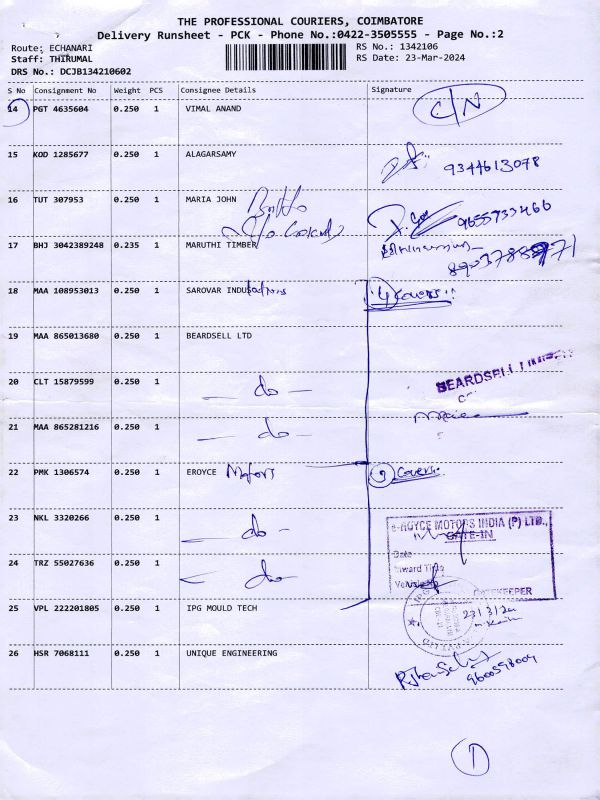 THE PROFESSIONAL COURIERS, COIMBATORE
Delivery Runsheet - PCK - Phone No.:0422-3505555 - Page No.:2
Route: ECHANARI
Staff: THIRUMAL
DRS No.: DCJB134210602
RS No.: 1342106
RS Date: 23-Mar-2024
S No Consignment No Weight PCS Consignee Details Signature
14 PGT 4635604 0.250 1 VIMAL ANAND C/N
15 KOD 1285677 0.250 1 ALAGARSAMY 9344613078
16 TUT 307953 0.250 1 MARIA JOHN 9655733466
17 BHJ 3042389248 0.235 1 MARUTHI TIMBER
18 MAA 108953013 0.250 1 SAROVAR INDUSTRIES 4 Covers
19 MAA 865013680 0.250 1 BEARDSELL LTD
20 CLT 15879599 0.250 1 - do - BEARDSELL LIMITED
21 MAA 865281216 0.250 1 - do -
22 PMK 1306574 0.250 1 EROYCE Motors 3 Covers
23 NKL 3320266 0.250 1 - do -
e-ROYCE MOTORS INDIA (P) LTD.,
GATE-IN
Date
24 TRZ 55027636 0.250 1 - do -
Inward Time
Vehicle No
GATEKEEPER
25 VPL 222201805 0.250 1 IPG MOULD TECH
26 HSR 7068111 0.250 1 UNIQUE ENGINEERING
9600598009
1